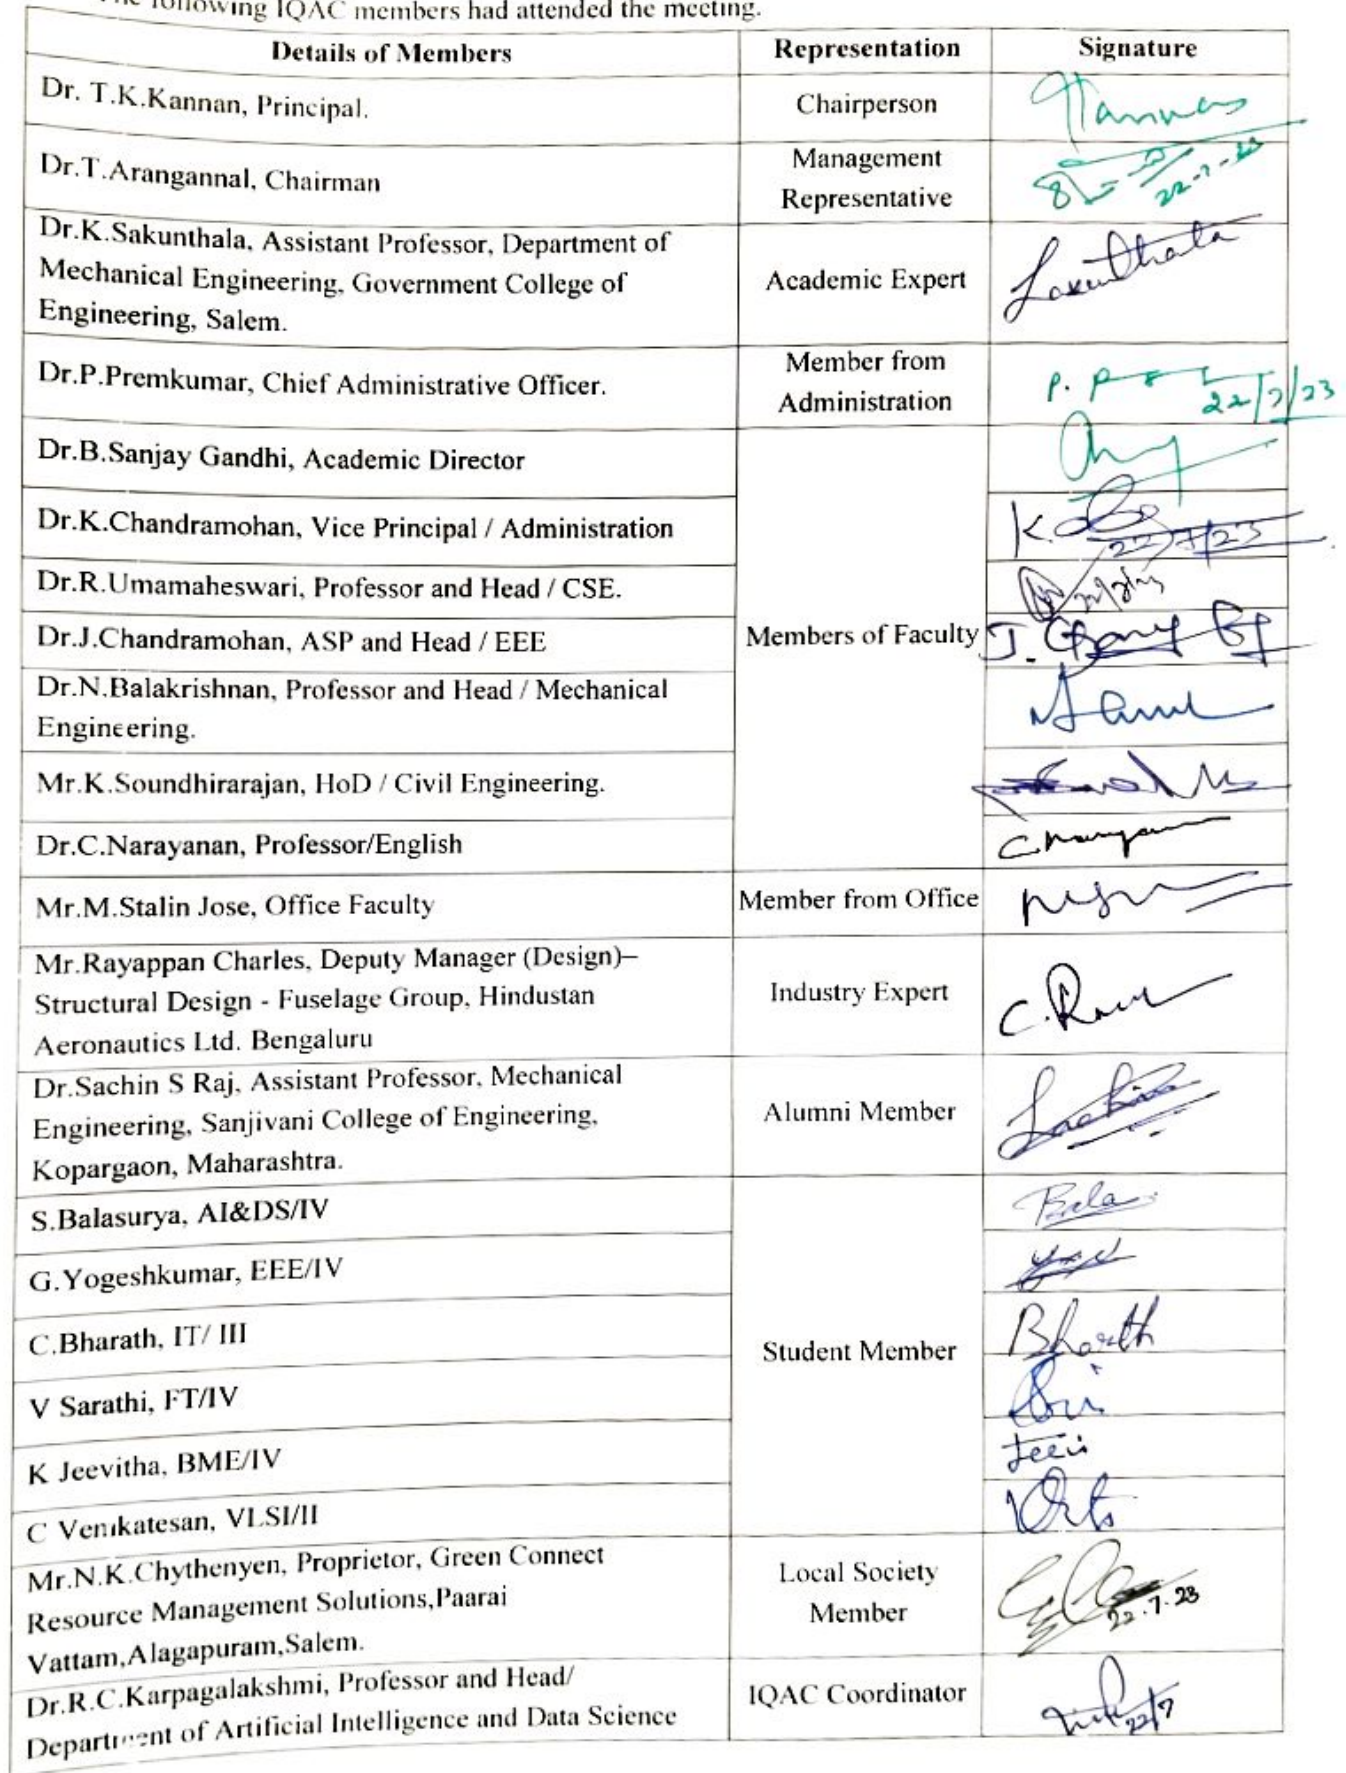 following IQAC members had attended the meeting.
Details of Members Representation Signature
Dr. T.K.Kannan, Principal. Chairperson
Dr.T.Arangannal, Chairman Management
Representative
22-7-23
Dr.K.Sakunthala, Assistant Professor, Department of
Mechanical Engineering, Government College of
Engineering, Salem.
Academic Expert
Sakunthala
Dr.P.Premkumar, Chief Administrative Officer.
Member from
Administration
P. 22/7/23
Dr.B.Sanjay Gandhi, Academic Director
Dr.K.Chandramohan, Vice Principal / Administration
K. 22/7/23
Dr.R.Umamaheswari, Professor and Head / CSE.
Dr.J.Chandramohan, ASP and Head / EEE
Members of Faculty
J.
Dr.N.Balakrishnan, Professor and Head / Mechanical
Engineering.
Mr.K.Soundhirarajan, HoD / Civil Engineering.
Dr.C.Narayanan, Professor/English
Mr.M.Stalin Jose, Office Faculty Member from Office
Mr.Rayappan Charles, Deputy Manager (Design)–
Structural Design - Fuselage Group, Hindustan
Aeronautics Ltd. Bengaluru
Industry Expert
C.
Dr.Sachin S Raj, Assistant Professor, Mechanical
Engineering, Sanjivani College of Engineering,
Kopargaon, Maharashtra.
Alumni Member
Sachin
S.Balasurya, AI&DS/IV
Bala
G.Yogeshkumar, EEE/IV
C.Bharath, IT/ III
Bharath
Student Member
V Sarathi, FT/IV
K Jeevitha, BME/IV
Jeevi
C Venkatesan, VLSI/II
Mr.N.K.Chythenyen, Proprietor, Green Connect
Resource Management Solutions,Paarai
Vattam,Alagapuram,Salem.
Local Society
Member
22.7.23
Dr.R.C.Karpagalakshmi, Professor and Head/
Department of Artificial Intelligence and Data Science
IQAC Coordinator
22/7